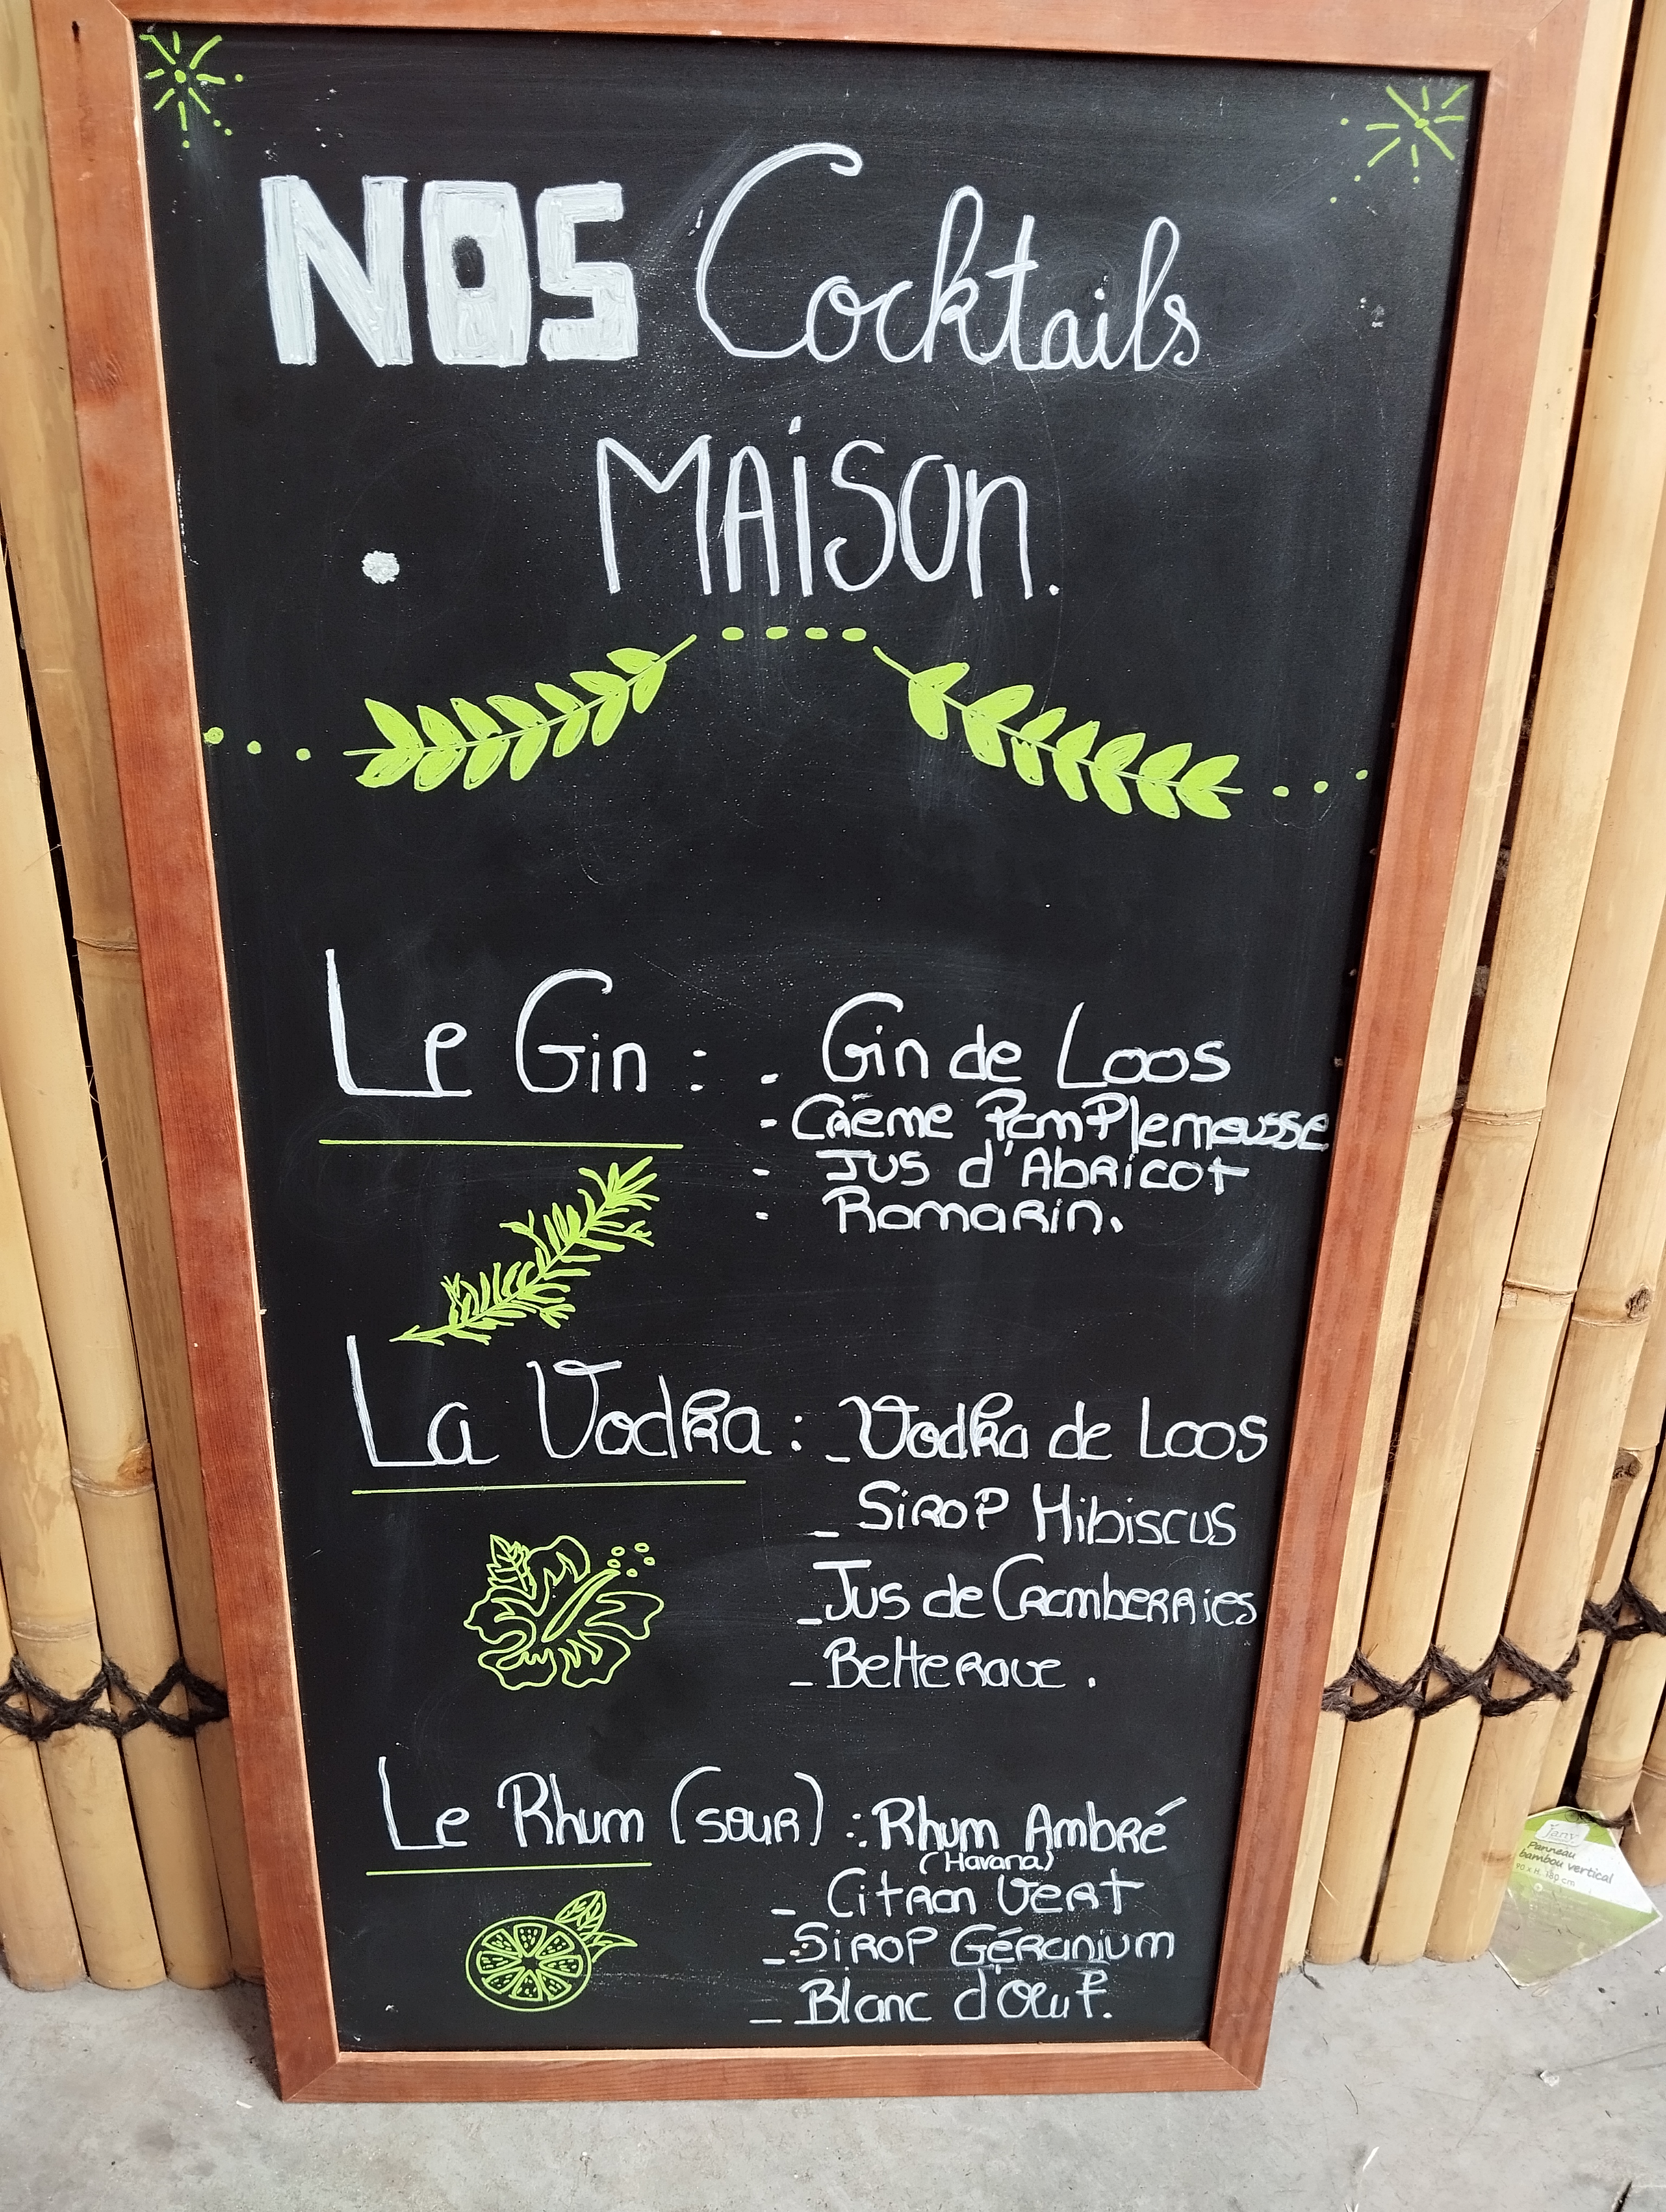 NOS Cocktails
MAiSon.
Le Gin : - Gin de Loos
- Crème Pamplemousse
- Jus d'Abricot
- Romarin.
La Vodka : - Vodka de Loos
- Sirop Hibiscus
- Jus de Cramberries
- Betterave.
Le Rhum (sour) : - Rhum Ambré
(Havana)
- Citron Vert
- Sirop Géranium
- Blanc d'Œuf.
Jany
Panneau
bambou vertical
90 x H. 180 cm